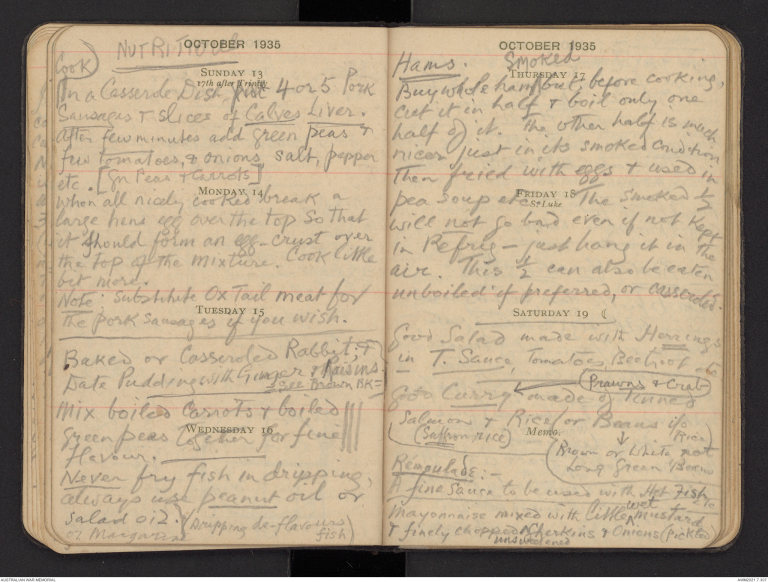 OCTOBER 1935
Cook) NUTRITIONAL
SUNDAY 13
17th after Trinity
In a Casserole Dish put 4 or 5 Pork
Sausages & slices of Calves Liver.
After few minutes add green peas &
few tomatoes, & onions salt, pepper
etc. [Gn Peas & Carrots]
MONDAY 14
When all nicely cooked break a
large hens egg over the top so that
it should form an egg-crust over
the top of the mixture. Cook little
bit more.
Note: Substitute Ox Tail meat for
the pork sausages if you wish.
TUESDAY 15
Baked or Casseroled Rabbit, &
Date Pudding with Ginger & Raisins.
= see Brown BK =
Mix boiled Carrots & boiled
Green peas together for fine
WEDNESDAY 16
flavour.
Never fry fish in dripping,
always use peanut oil or
Salad oil. (Dripping de-flavours
or Margarine fish)
OCTOBER 1935
Hams. Smoked
THURSDAY 17
Buy whole ham but, before cooking,
cut it in half & boil only one
half of it. The other half is much
nicer just in its smoked condition
then fried with eggs & used in
pea soup etc. The smoked ½
FRIDAY 18
St. Luke
will not go bad even if not kept
in Refrig – just hang it in the
air. This ½ can also be eaten
unboiled if preferred, or casseroled.
SATURDAY 19 ☾
Good Salad made with Herrings
in T. Sauce, Tomatoes, Beetroot
(Prawns & Crab)
Good Curry made of tinned
Salmon & Rice (or Beans i/o
(Saffron rice) Rice)
Memo.
Brown or White not
Long green Beans
Rémoulade: -
A fine sauce to be used with Hot Fish
Mayonnaise mixed with little wet mustard
& finely chopped Gherkins & Onions (Pickled)
unsweetened
AUSTRALIAN WAR MEMORIAL